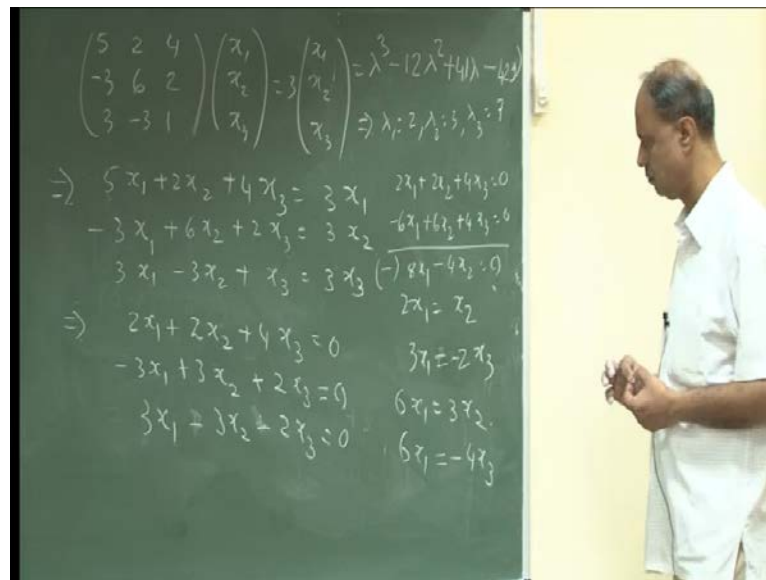 ( 5 2 4 ) ( x₁ ) = 3 ( x₁ ) = λ³ - 12λ² + 41λ - 42
( -3 6 2 ) ( x₂ ) ( x₂ )
( 3 -3 1 ) ( x₃ ) ( x₃ ) ⇒ λ₁ = 2, λ₂ = 3, λ₃ = 7
⇒ 5x₁ + 2x₂ + 4x₃ = 3x₁
-3x₁ + 6x₂ + 2x₃ = 3x₂
3x₁ - 3x₂ + x₃ = 3x₃
⇒ 2x₁ + 2x₂ + 4x₃ = 0
-3x₁ + 3x₂ + 2x₃ = 0
3x₁ - 3x₂ - 2x₃ = 0
2x₁ + 2x₂ + 4x₃ = 0
-6x₁ + 6x₂ + 4x₃ = 0
(-) 8x₁ - 4x₂ = 0
2x₁ = x₂
3x₁ = -2x₃
6x₁ = 3x₂.
6x₁ = -4x₃